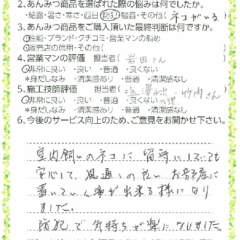 2.あんみつ商品を選ばれた際の悩みは何でしたか。
・結露・暑さ・寒さ・西日・防犯・騒音・その他( ネコがいる
3.あんみつ商品をご購入頂いた最終判断は何ですか。
・性能・ブランド・クチコミ・営業マンの勧め
・販売店の信用・その他(
4.営業マンの評価 担当者( 岩田さん
・非常に良い ・良い ・普通 ・良くない
*身だしなみ ・清潔感あり ・普通 ・不潔感
5.施工技術評価 担当者( 竹内さん
・非常に良い ・良い ・普通
*身だしなみ ・清潔感あり ・普通 ・不潔感など
6.今後のサービス向上のため、ご意見をお聞かせ下さい。
室内飼いのネコに留守にしていても
安心して、風通しの良いお部屋に
置いていく事が出来る様になり
ました。
防犯で気持ちが楽になりました